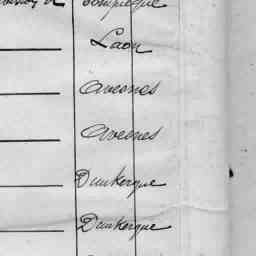 Compiègne
Laon
Avesnes
Avesnes
Dunkerque
Dunkerque